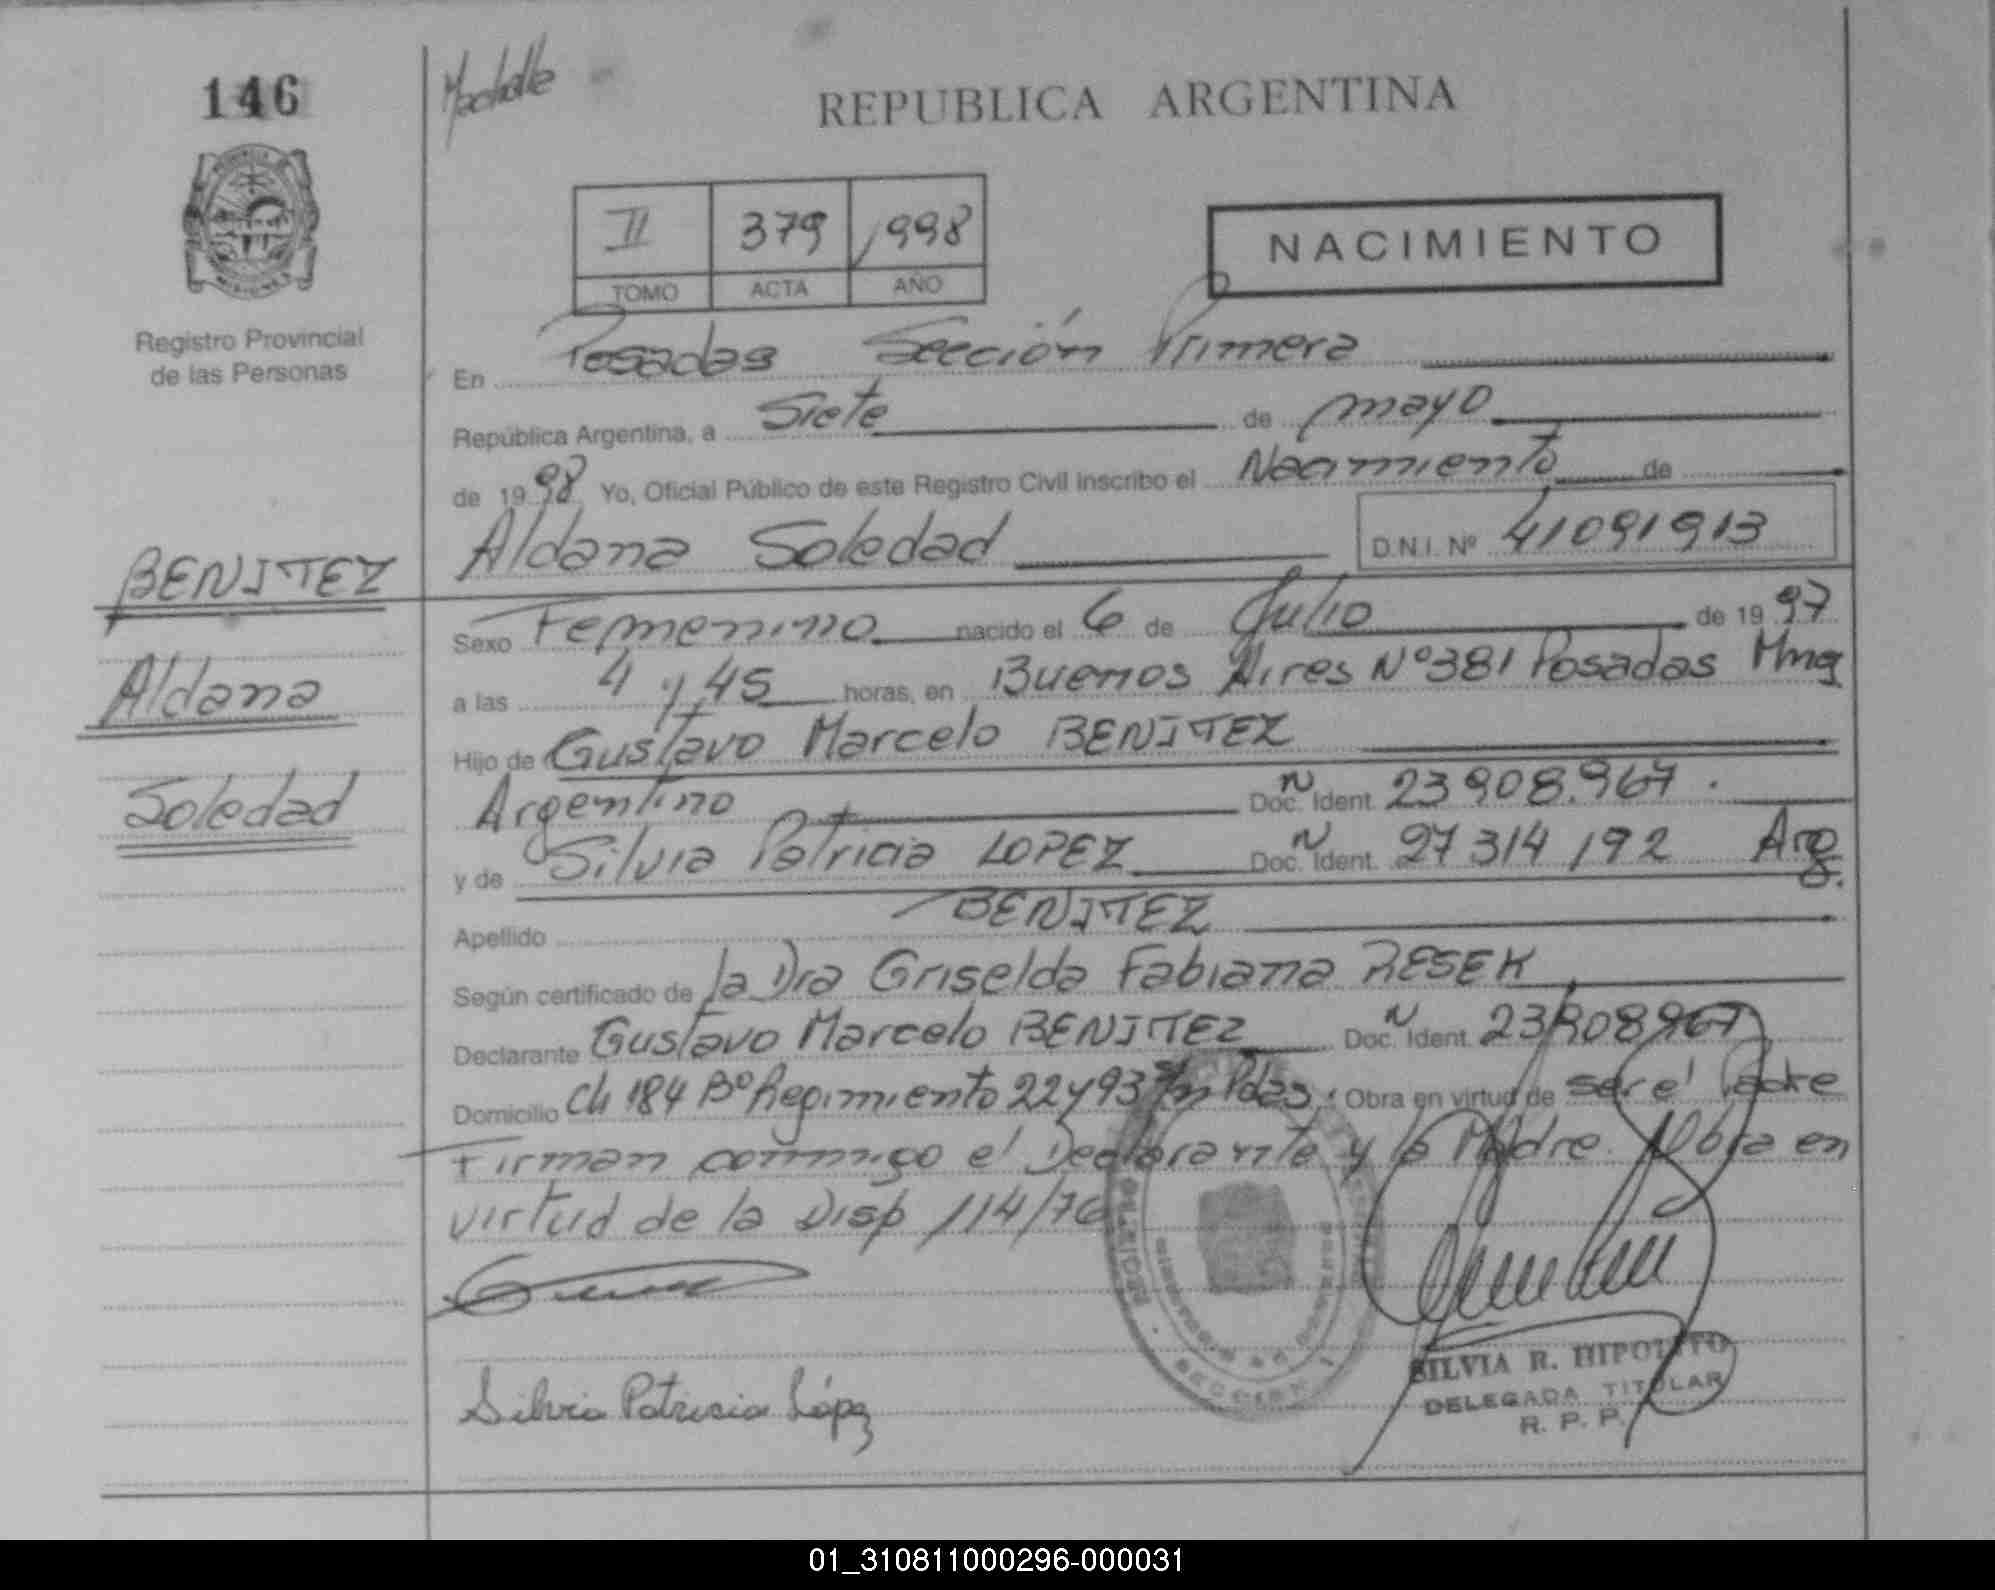 146
REPUBLICA ARGENTINA
II 379 1998
TOMO ACTA AÑO
NACIMIENTO
Registro Provincial
de las Personas
En Posadas Sección Primera
República Argentina, a Siete de mayo
de 1998 Yo, Oficial Público de este Registro Civil inscribo el Nacimiento de
Aldana Soledad D.N.I. Nº 41091913
BENITEZ
Aldana
Soledad
Sexo Femenino nacido el 6 de Julio de 1997
a las 4 y 45 horas, en Buenos Aires Nº 381 Posadas Mnes
Hijo de Gustavo Marcelo BENITEZ
Argentino Doc. Ident. 23908.967.
y de Silvia Patricia LOPEZ Doc. Ident. 27314192 Arg.
Apellido BENITEZ
Según certificado de la Dra Griselda Fabiana RESEK
Declarante Gustavo Marcelo BENITEZ Doc. Ident. 23908967
Domicilio Ch 184 Bº Regimiento 22 y 93 Pdas. Obra en virtud de ser el Padre
Firman conmigo el Declarante y la Madre. Obra en
virtud de la Disp 114/76
Silvia Patricia López
SILVIA R. HIPOLITO
DELEGADA TITULAR
R. P. P.
01_310811000296-000031